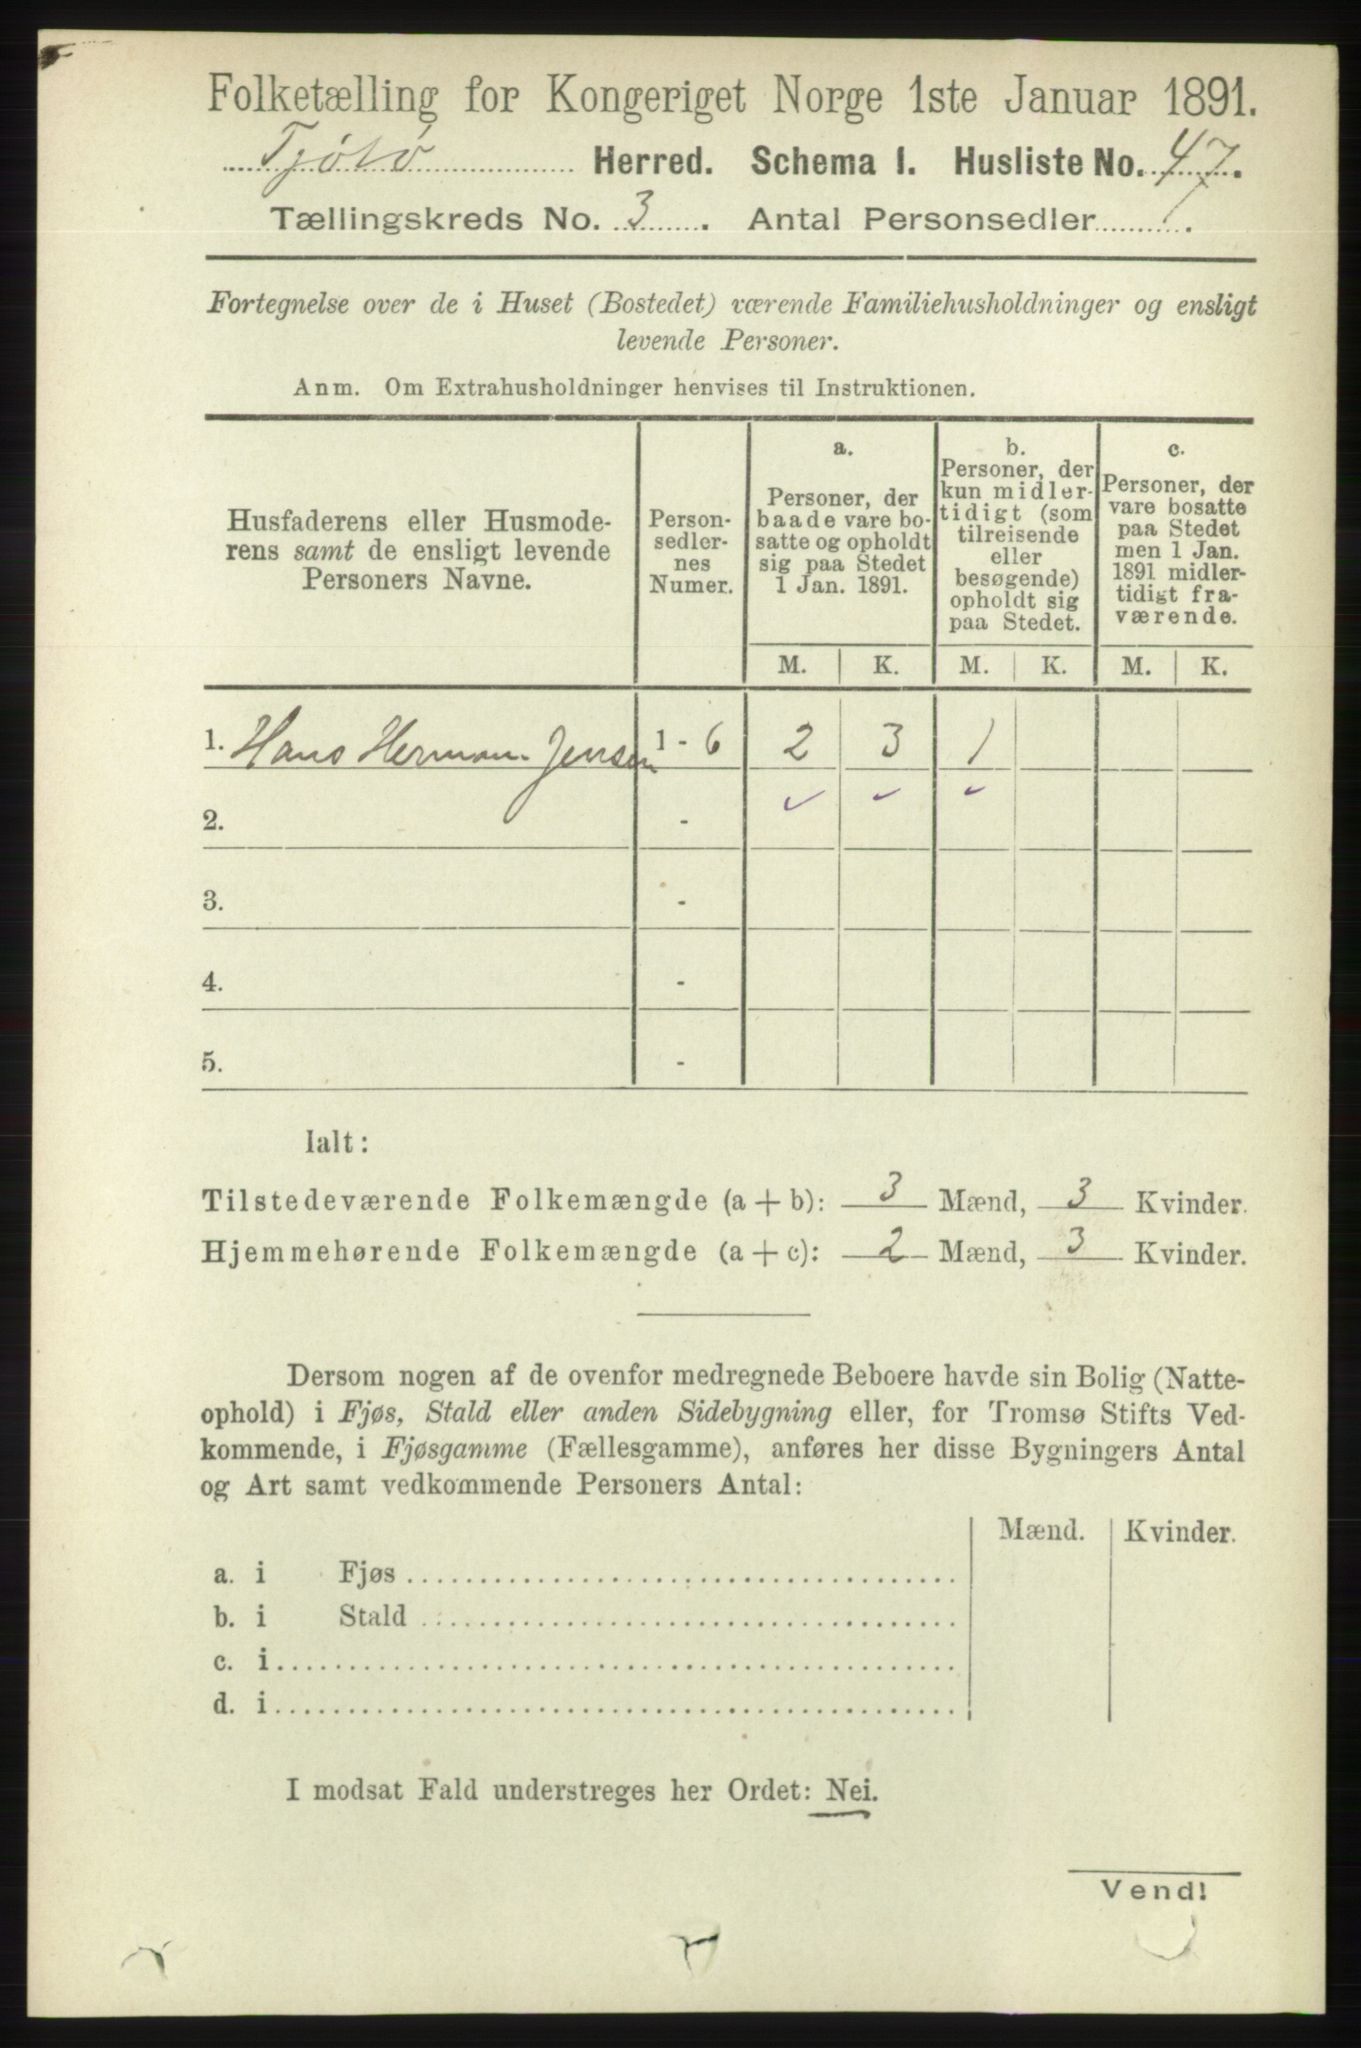 Folketælling for Kongeriget Norge 1ste Januar 1891.
Tjøtø Herred. Schema I. Husliste No. 47.
Tællingskreds No. 3. Antal Personsedler
Fortegnelse over de i Huset (Bostedet) værende Familiehusholdninger og ensligt
levende Personer.
Anm. Om Extrahusholdninger henvises til Instruktionen.
Husfaderens eller Husmode-
rens samt de ensligt levende
Personers Navne.
Person-
sedler-
nes
Numer.
a.
Personer, der
baade vare bo-
satte og opholdt
sig paa Stedet
1 Jan. 1891.
b.
Personer, der
kun midler-
tidigt (som
tilreisende
eller
besøgende)
opholdt sig
paa Stedet.
c.
Personer, der
vare bosatte
paa Stedet
men 1 Jan.
1891 midler-
tidigt fra-
værende.
M. K. M. K. M. K.
1. Hans Herman Jensen 1 - 6 2 3 1
2. -
3. -
4. -
5. -
Ialt:
Tilstedeværende Folkemængde (a + b): 3 Mænd, 3 Kvinder.
Hjemmehørende Folkemængde (a + c): 2 Mænd, 3 Kvinder.
Dersom nogen af de ovenfor medregnede Beboere havde sin Bolig (Natte-
ophold) i Fjøs, Stald eller anden Sidebygning eller, for Tromsø Stifts Ved-
kommende, i Fjøsgamme (Fællesgamme), anføres her disse Bygningers Antal
og Art samt vedkommende Personers Antal:
Mænd. Kvinder.
a. i Fjøs
b. i Stald
c. i
d. i
I modsat Fald understreges her Ordet: Nei.
Vend!